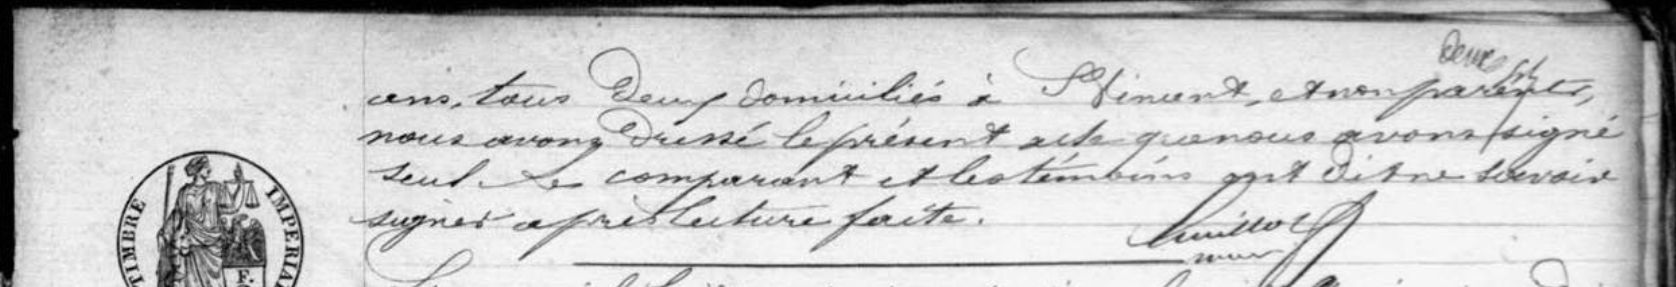 ans, tous deux domiciliés à St Vincent, et non parents,
nous avons dressé le présent acte que nous avons signé
seul. Le comparant et les témoins ont dit ne savoir
signer après lecture faite.
TIMBRE IMPERIAL
F.